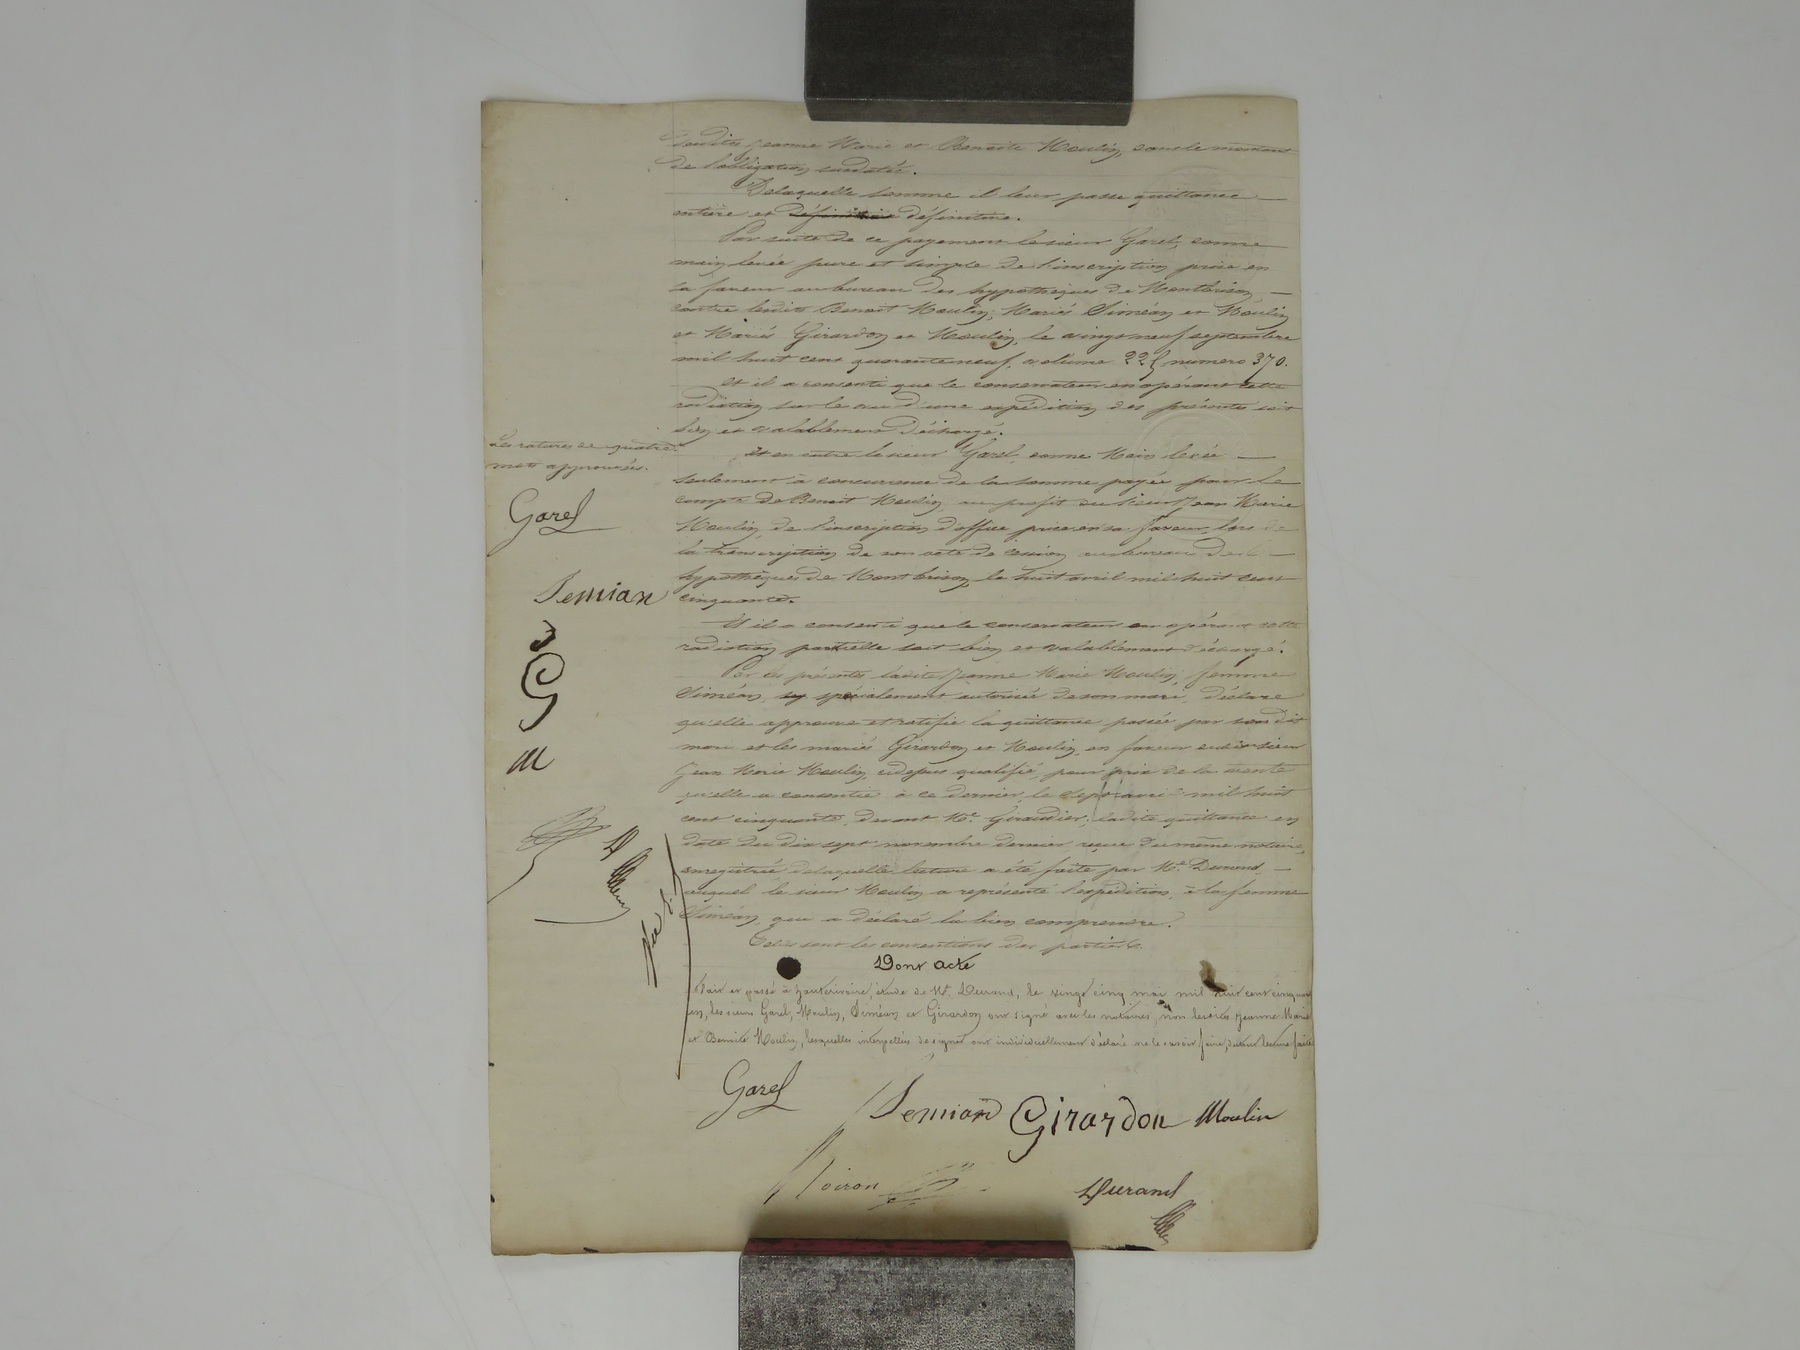 desdites Jeanne Marie et Benoite Moulin, dans le montant
de l'obligation susdatée.
Delaquelle somme il leur passe quittance
entière et définitive définitive.
Par suite de ce payement le sieur Garel, donne
main levée pure et simple de l'inscription prise en
sa faveur au bureau des hypothèques de Montbrison
contre lesdits Benoit Moulin, Mariés Siméan et Moulin
et Mariés Girardon et Moulin, le vingt neuf septembre
mil huit cent quarante neuf, volume 225 numero 370.
et il a consenti que le conservateur en opérant cette
radiation sur le vu d'une expédition des présentes soit
bien et valablement déchargé.
et en outre le sieur Garel, donne Main levée
seulement à concurrence de la somme payée pour le
compte de Benoit Moulin, au profit du sieur Jean Marie
Moulin, de l'inscription d'office prise en sa faveur, lors de
la transcription de son acte de cession au bureau des
hypothèques de Montbrison, le huit avril mil huit cent
cinquante.
Et il a consenti que le conservateur en opérant cette
radiation partielle soit bien et valablement déchargé.
Par ces présentes ladite Jeanne Marie Moulin, femme
Siméan, spécialement autorisée de son mari, déclare
qu'elle approuve et ratifie la quittance passée par son dit
mari et les mariés Girardon et Moulin, en faveur dudit sieur
Jean Marie Moulin, cidessus qualifié, pour prix de la vente
qu'elle a consentie à ce dernier, le sept avril mil huit
cent cinquante, devant Me. Giraudier, ladite quittance en
date du dix sept novembre dernier reçue du même notaire,
enregistrée delaquelle lecture a été faite par Me. Durand,
auquel le sieur Moulin a représenté l'expédition, à la femme
Siméan, qui a déclaré la bien comprendre.
Telles sont les conventions des parties.
Dont acte
Fait et passé à hauterivoire, étude de Me. Durand, le vingt cinq mai mil huit cent cinquante
un, les sieurs Garel, Moulin, Siméan et Girardon ont signé avec les notaires, non lesdites Jeanne Marie
et Benoite Moulin, lesquelles interpellées de signer ont individuellement déclaré ne le savoir faire, de leur lecture faite
Les ratures de quatre
mots approuvées.
Garel
Semian
G
M
D
Garel
Semian Girardon Moulin
Noiron
Durand